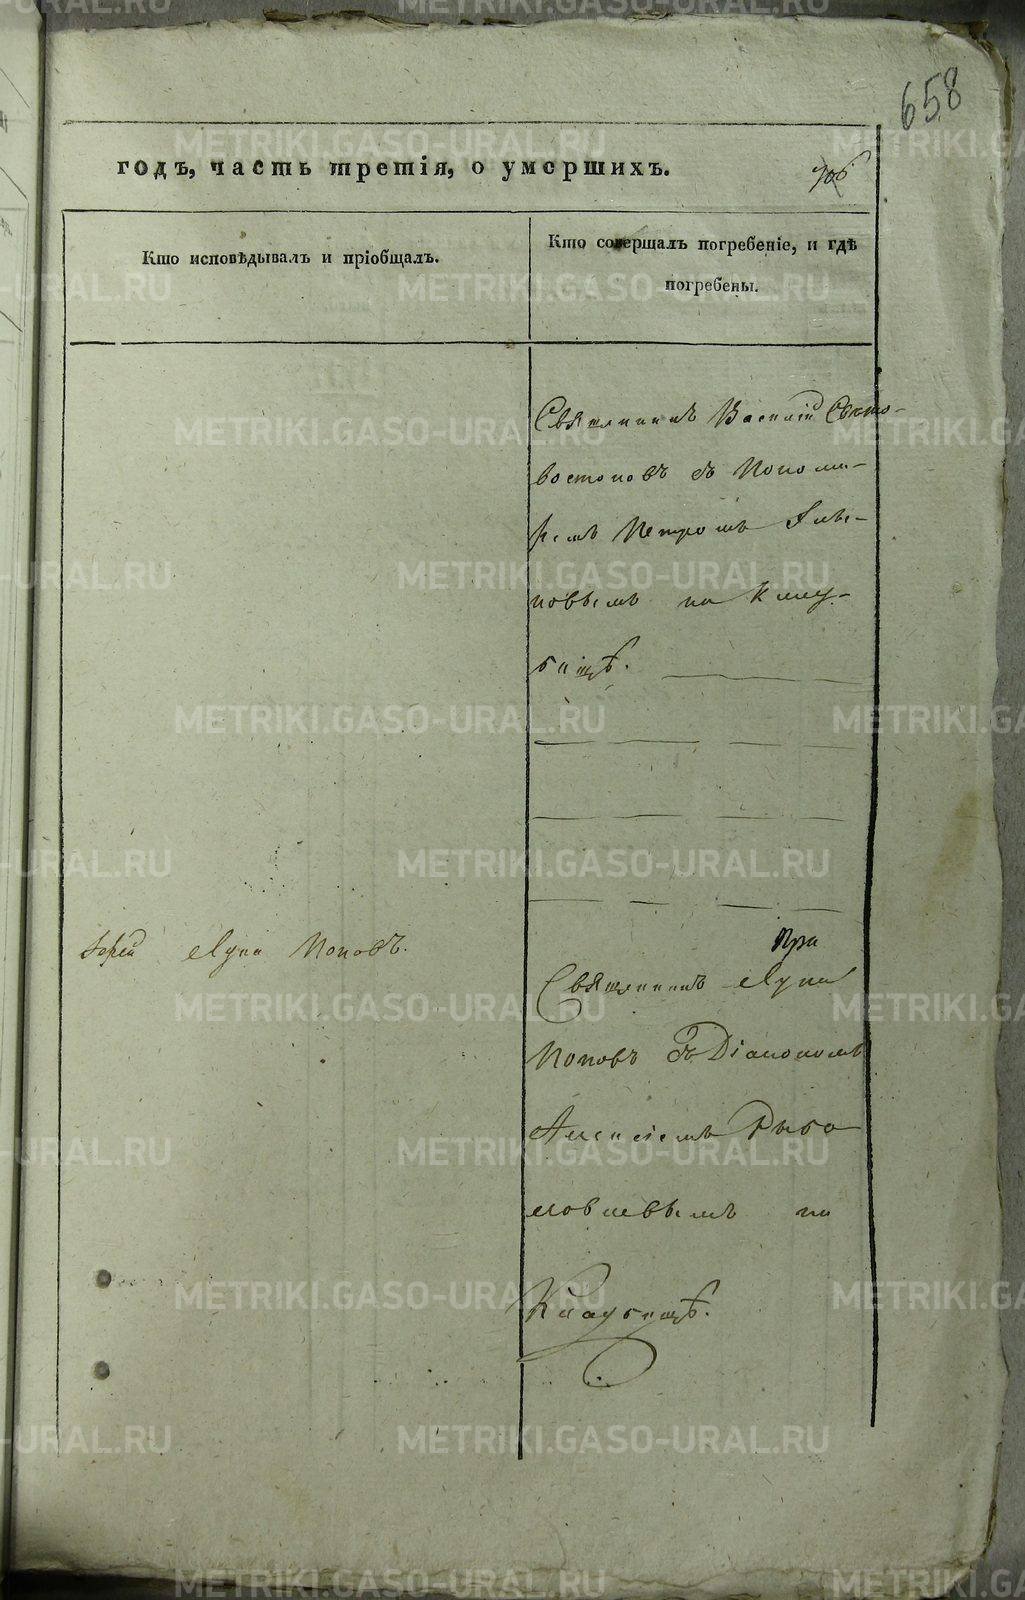 658
годъ, часть третія, о умершихъ.
706
Кто исповѣдывалъ и пріобщалъ.
Кто совершалъ погребеніе, и гдѣ
погребены.
Священникъ Василій Свѣто-
востоковъ съ Понома-
ремъ Петромъ
новымъ на клад-
бищѣ.
При
Іерей Лука Поповъ.
Священникъ Лука
Поповъ съ Діакономъ
Алексіемъ Рыбо
ловлевымъ на
Кладбищѣ.
METRIKI.GASO-URAL.RU